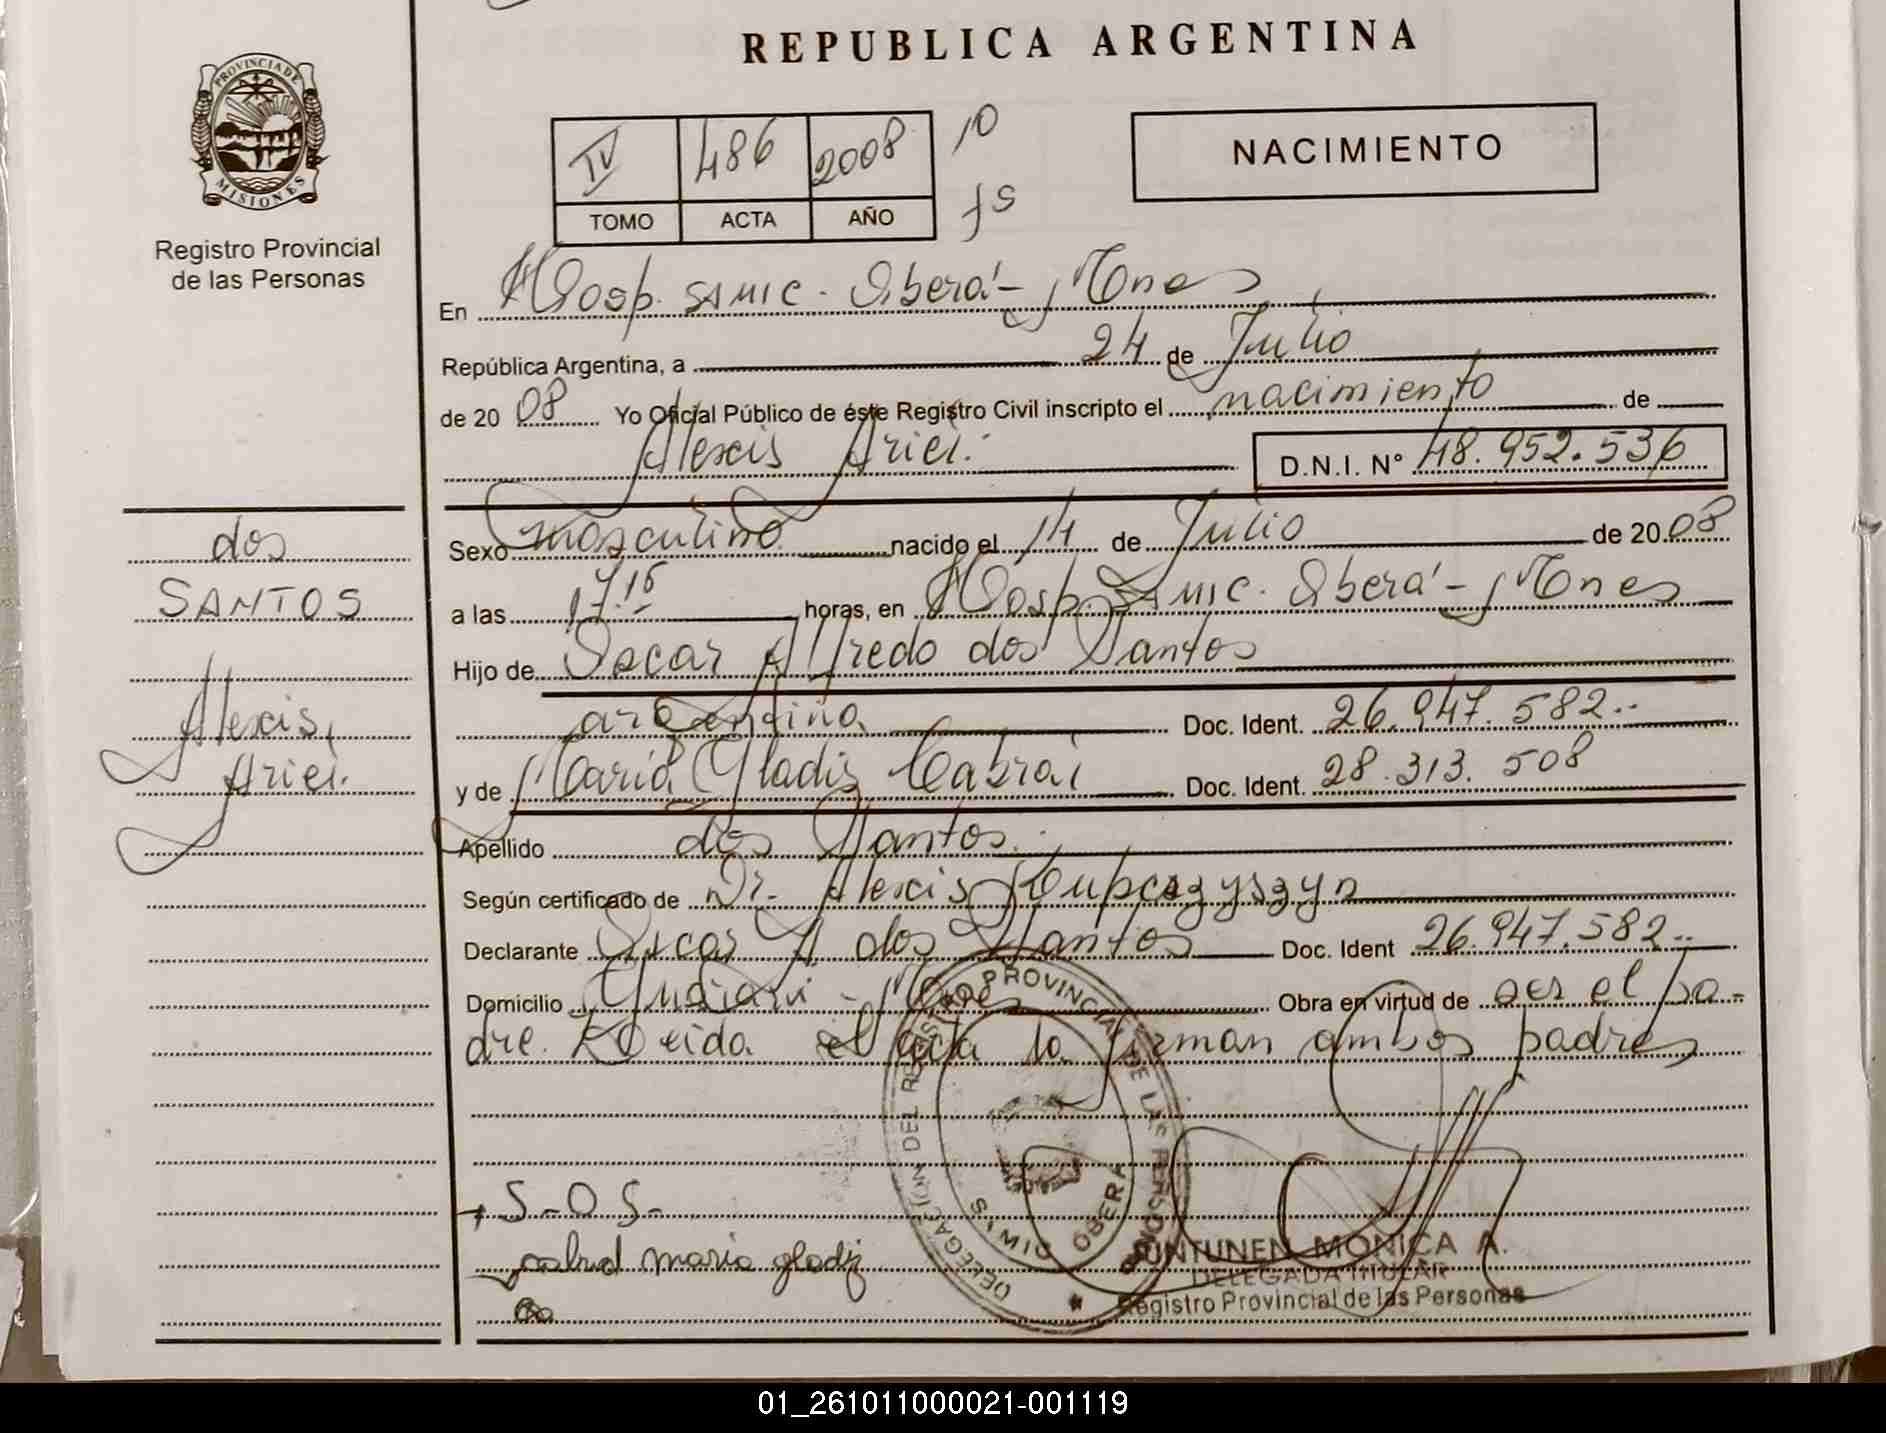 REPUBLICA ARGENTINA
PROVINCIA DE
MISIONES
Registro Provincial
de las Personas
IV 486 2008 10
TOMO ACTA AÑO
NACIMIENTO
En Hosp. SAMIC. Oberá - Mnes
República Argentina, a 24 de Julio
de 20 08 Yo Oficial Público de éste Registro Civil inscripto el nacimiento de
Alexis Ariel. D.N.I. N° 48.952.536
dos
SANTOS
Alexis,
Ariel.
Sexo masculino nacido el 14 de Julio de 20 08
a las 17.15 horas, en Hosp. Samic. Oberá - Mnes
Hijo de Oscar Alfredo dos Santos
argentino Doc. Ident. 26.947.582..
y de María Gladis Cabral Doc. Ident. 28.313.508
Apellido dos Santos.
Según certificado de Dr. Alexis
Declarante Oscar A. dos Santos Doc. Ident 26.947.582..
Domicilio Guaraní - Mnes Obra en virtud de ser el pa-
dre. Leída el acta la firman ambos padres
S-O S-
cabral maria gladiz
DELEGACIÓN DEL REG. PROVINCIAL DE LAS PERSONAS
OBERA
MONICA A.
DELEGADA TITULAR
Registro Provincial de las Personas
01_261011000021-001119